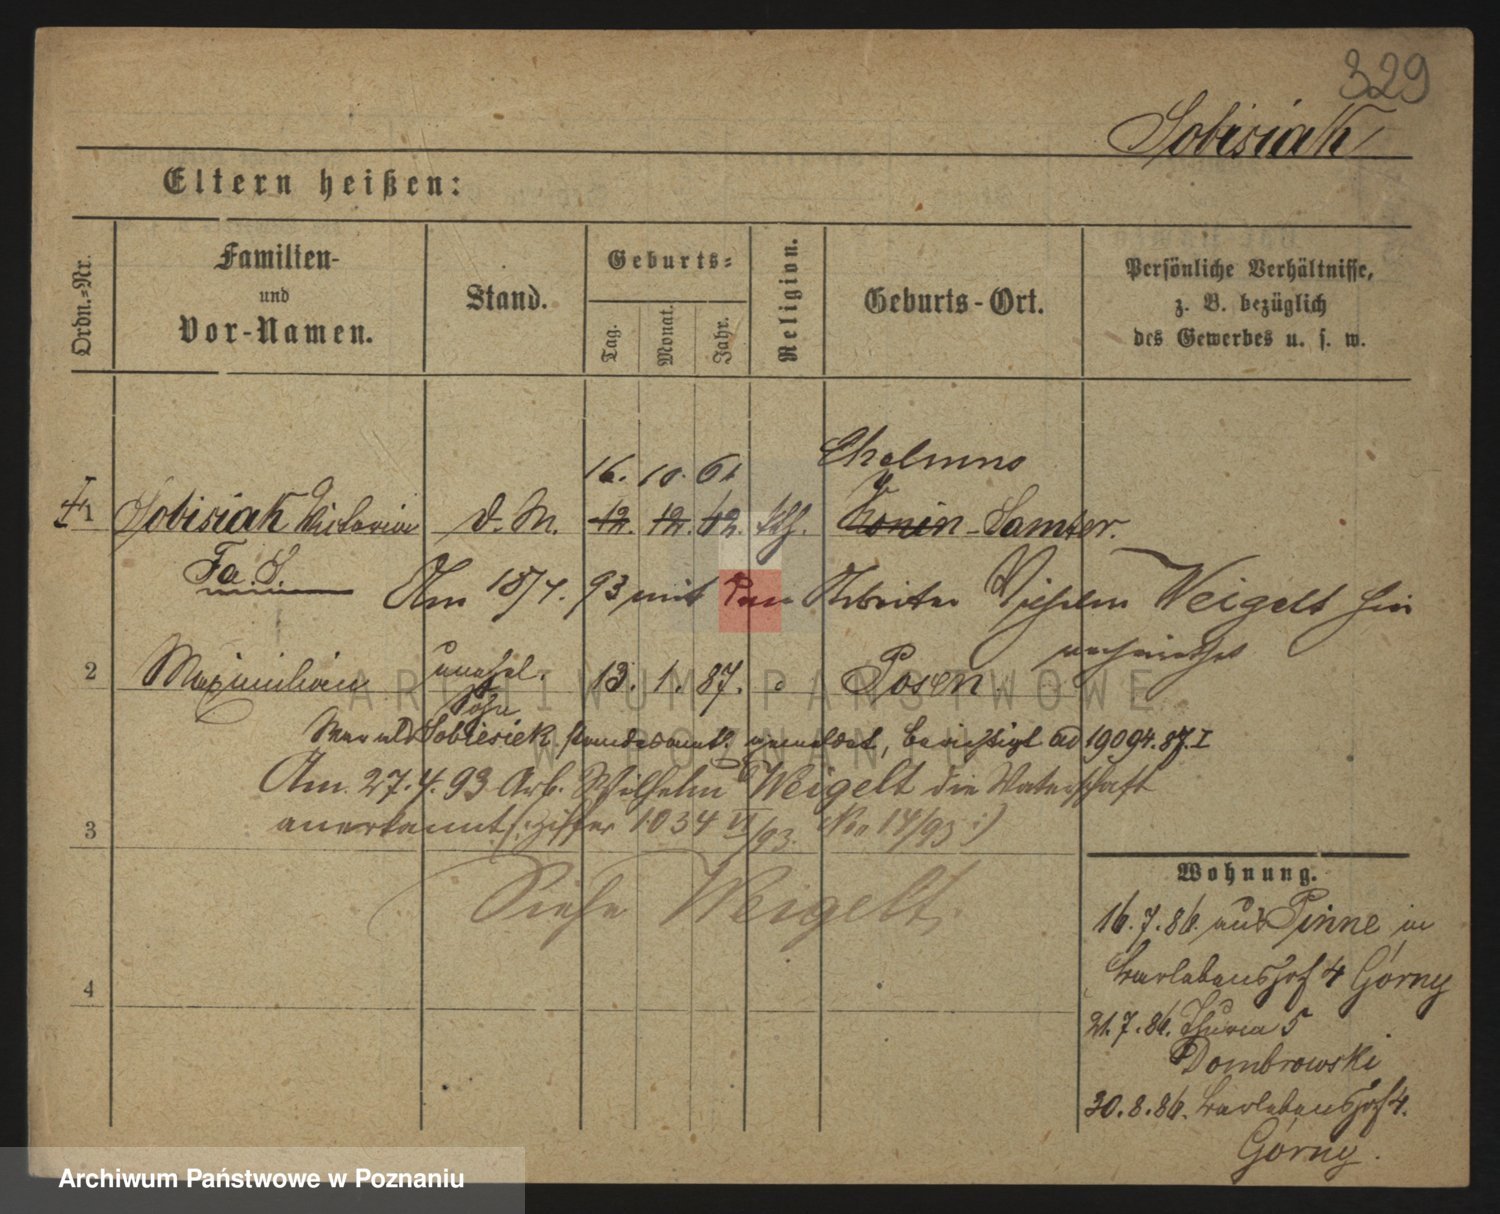 329
Sobisiak
Eltern heißen:
Ordn.-Nr.
Familien-
und
Vor-Namen.
Stand.
Geburts-
Tag.
Monat.
Jahr.
Religion.
Geburts-Ort.
Persönliche Verhältnisse,
z. B. bezüglich
des Gewerbes u. s. w.
16. 10. 61 Chelmno
1 Sobisiak Victoria d. M. 12. 12. 62. kth. Konin - Samter.
Fa. S.
Am 18/4. 93 mit dem Arbeiter Wilhelm Weigelt hier
verheirathet
2 Maximilian unehel. 13. 1. 87. Posen
Sohn
War als Sobiesiek standesamtl. gemeldet, berichtigt ad 19094.87.I
Am 27.4.93 Arb. Wilhelm Weigelt die Vaterschaft
anerkannt (: Ziffer 1034 VI/93. No 14/93 :)
3
Siehe Weigelt.
4
Wohnung.
16.7.86. aus Pinne in
Warlebenshof 4 Górny
21.7.86. 5
Dombrowski
30.8.86. Warlebenshof 4.
Górny.
ARCHIWUM PAŃSTWOWE
W POZNANIU
Archiwum Państwowe w Poznaniu